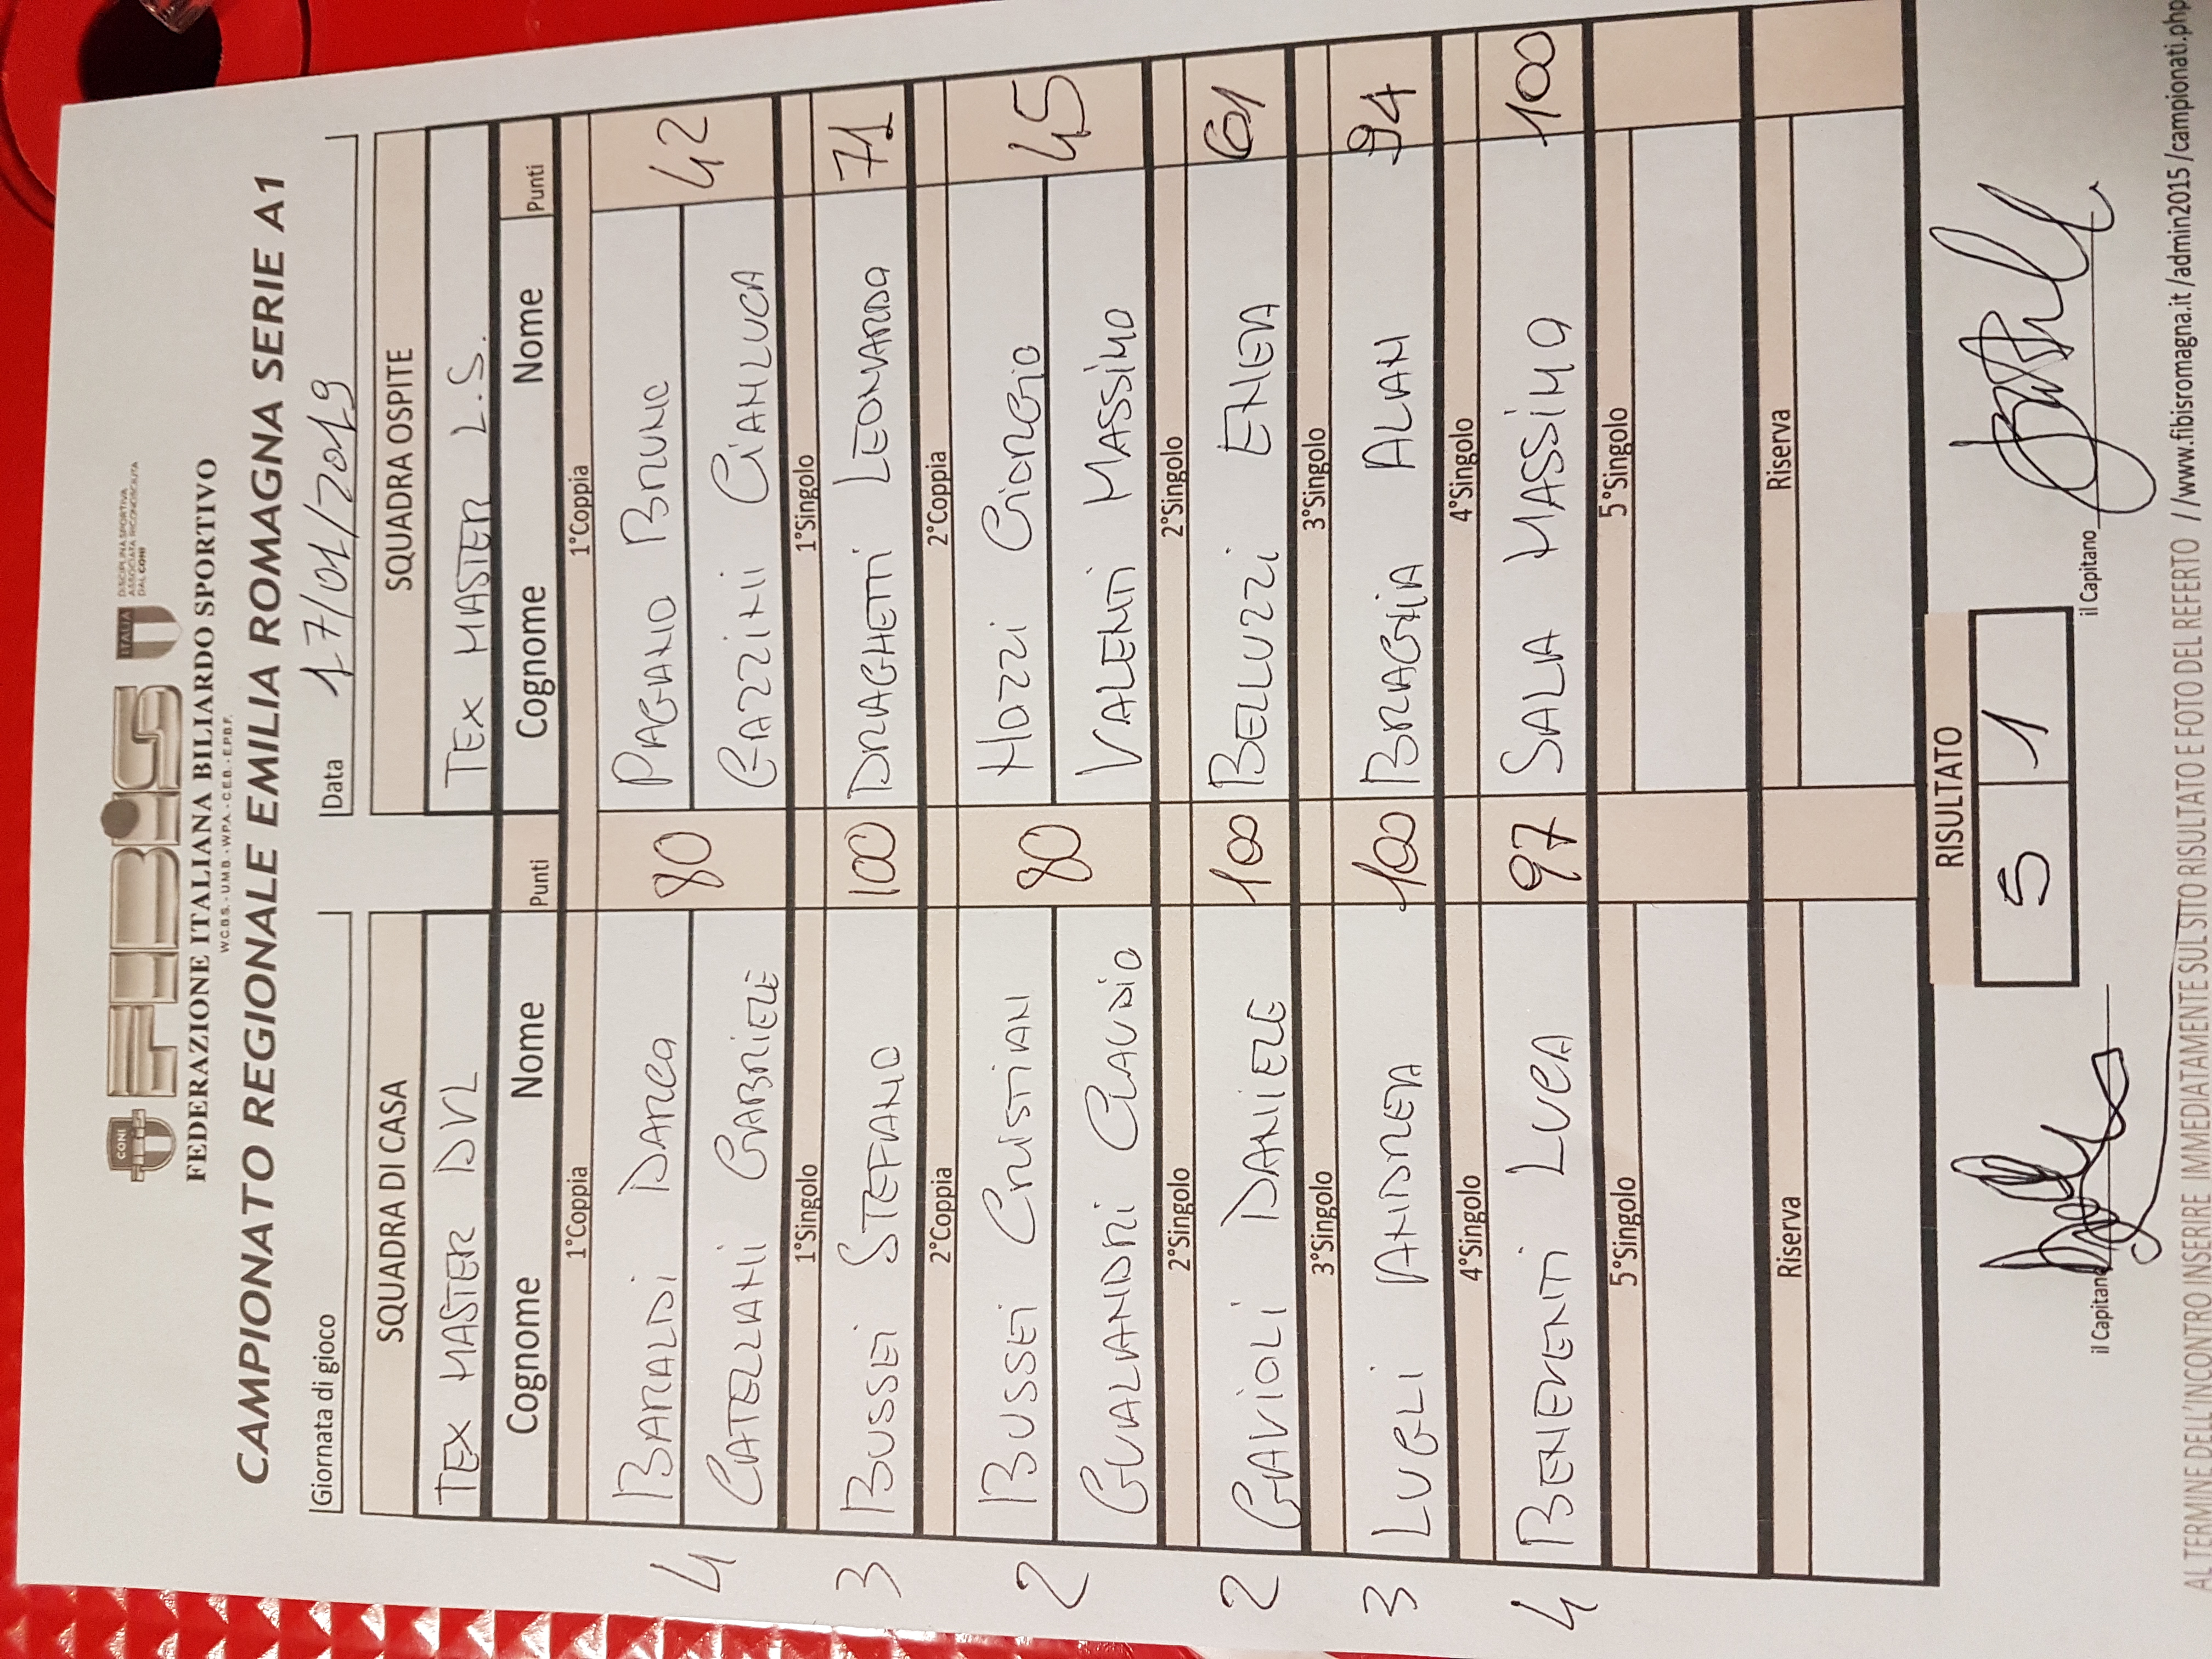 CONI
FIBIS
ITALIA
DISCIPLINA SPORTIVA
ASSOCIATA RICONOSCIUTA
DAL CONI
FEDERAZIONE ITALIANA BILIARDO SPORTIVO
W.C.B.S. - U.M.B. - W.P.A. - C.E.B. - E.P.B.F.
CAMPIONATO REGIONALE EMILIA ROMAGNA SERIE A1
Giornata di gioco Data 17/01/2019
SQUADRA DI CASA SQUADRA OSPITE
TEX MASTER DVL TEX MASTER L.S.
Cognome Nome Punti Cognome Nome Punti
1°Coppia 1°Coppia
4 BARALDI DARCO 80 PAGANO BRUNO 42
CATELLANI GABRIELE GAZZINI GIANLUCA
1°Singolo 1°Singolo
3 BUSSEI STEFANO 100 DRAGHETTI LEONARDO 71
2°Coppia 2°Coppia
2 BUSSEI CRISTIAN 80 MOZZI GIORGIO 45
GUALANDRI CLAUDIO VALENTI MASSIMO
2°Singolo 2°Singolo
2 GAVIOLI DANIELE 100 BELLUZZI ENEA 61
3°Singolo 3°Singolo
3 LUGLI ANDREA 100 BRAGHIA ALAN 94
4°Singolo 4°Singolo
4 BENEVENTI LUCA 97 SALA MASSIMO 100
5°Singolo 5°Singolo
Riserva Riserva
RISULTATO
5 1
il Capitano il Capitano
AL TERMINE DELL'INCONTRO INSERIRE IMMEDIATAMENTE SUL SITO RISULTATO E FOTO DEL REFERTO //www.fibisromagna.it/admin2015/campionati.php